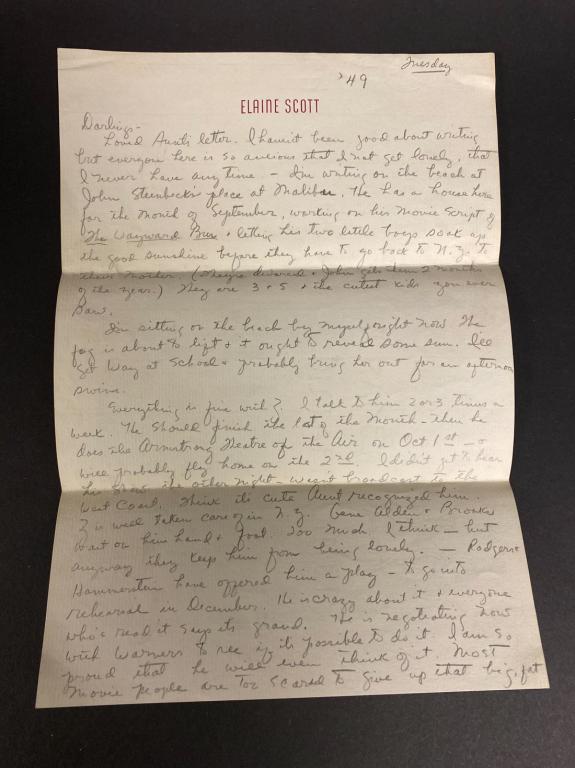 Tuesday
'49
ELAINE SCOTT
Darlings-
Loved Aunt's letter. I haven't been good about writing
but everyone here is so anxious that I not get lonely, that
I never have any time. - I'm writing on the beach at
John Steinbeck's place at Malibu. He has a house here
for the month of September, working on his movie script of
The Wayward Bus & letting his two little boys soak up
the good sunshine before they have to go back to N.Y. to
their mother. (They're divorced & John gets them 2 months
of the year.) They are 3 & 5 & the cutest kids you ever
saw.
I'm sitting on the beach by myself right now. The
fog is about to lift & it ought to reveal some sun. I'll
get Way at school & probably bring her out for an afternoon
swim.
Everything is fine with Z. I talk to him 2 or 3 times a
week. He should finish the last of the month - then he
does the Armstrong Theatre of the Air on Oct 1st - &
will probably fly home on the 2nd. I didn't get to hear
his show the other night - wasn't broadcast to the
West Coast. Think it's cute Aunt recognized him.
Z is well taken care of in N.Y. Gene & Brooks
wait on him hand & foot. Too much I think - but
anyway they keep him from being lonely. - Rodgers &
Hammerstein have offered him a play - to go into
rehearsal in December. He is crazy about it & everyone
who's read it says its grand. He is negotiating now
with Warners to see if its possible to do it. I am so
proud that he will even think of it. Most
movie people are too scared to give up that big, fat